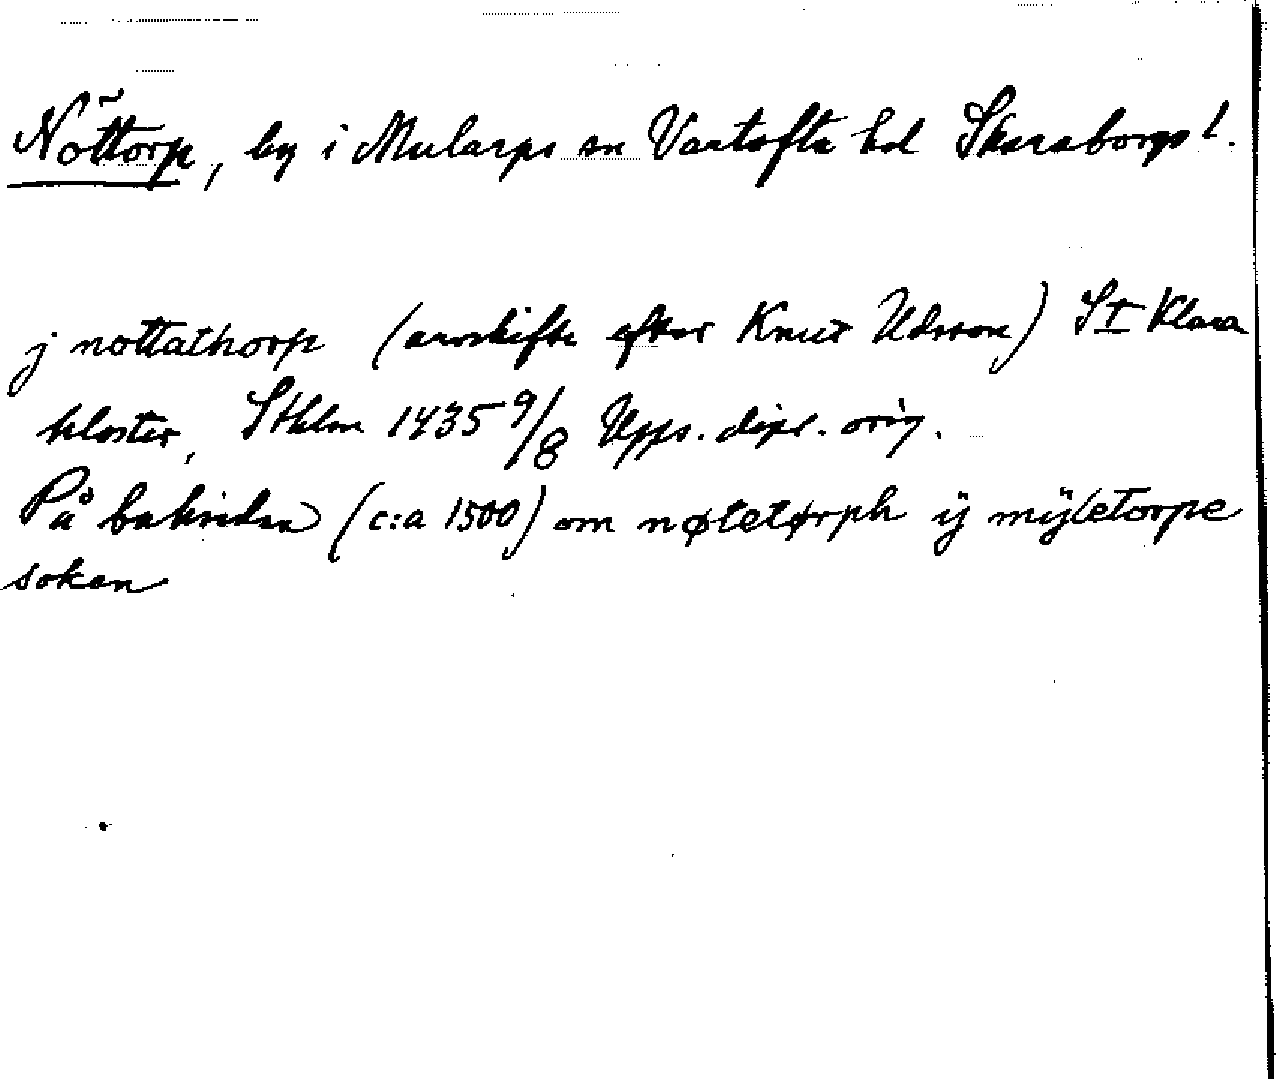 Nöttorp, by i Mularps sn Vartofta hd Skaraborgs l.
j nottathorp (arvskifte efter Knut Udsson) St Klara
kloster, Sthlm 1435 9/8 Upps. dipl. orig.
På baksidan (c:a 1500) om nøtetørph ij mÿletorpe
soken